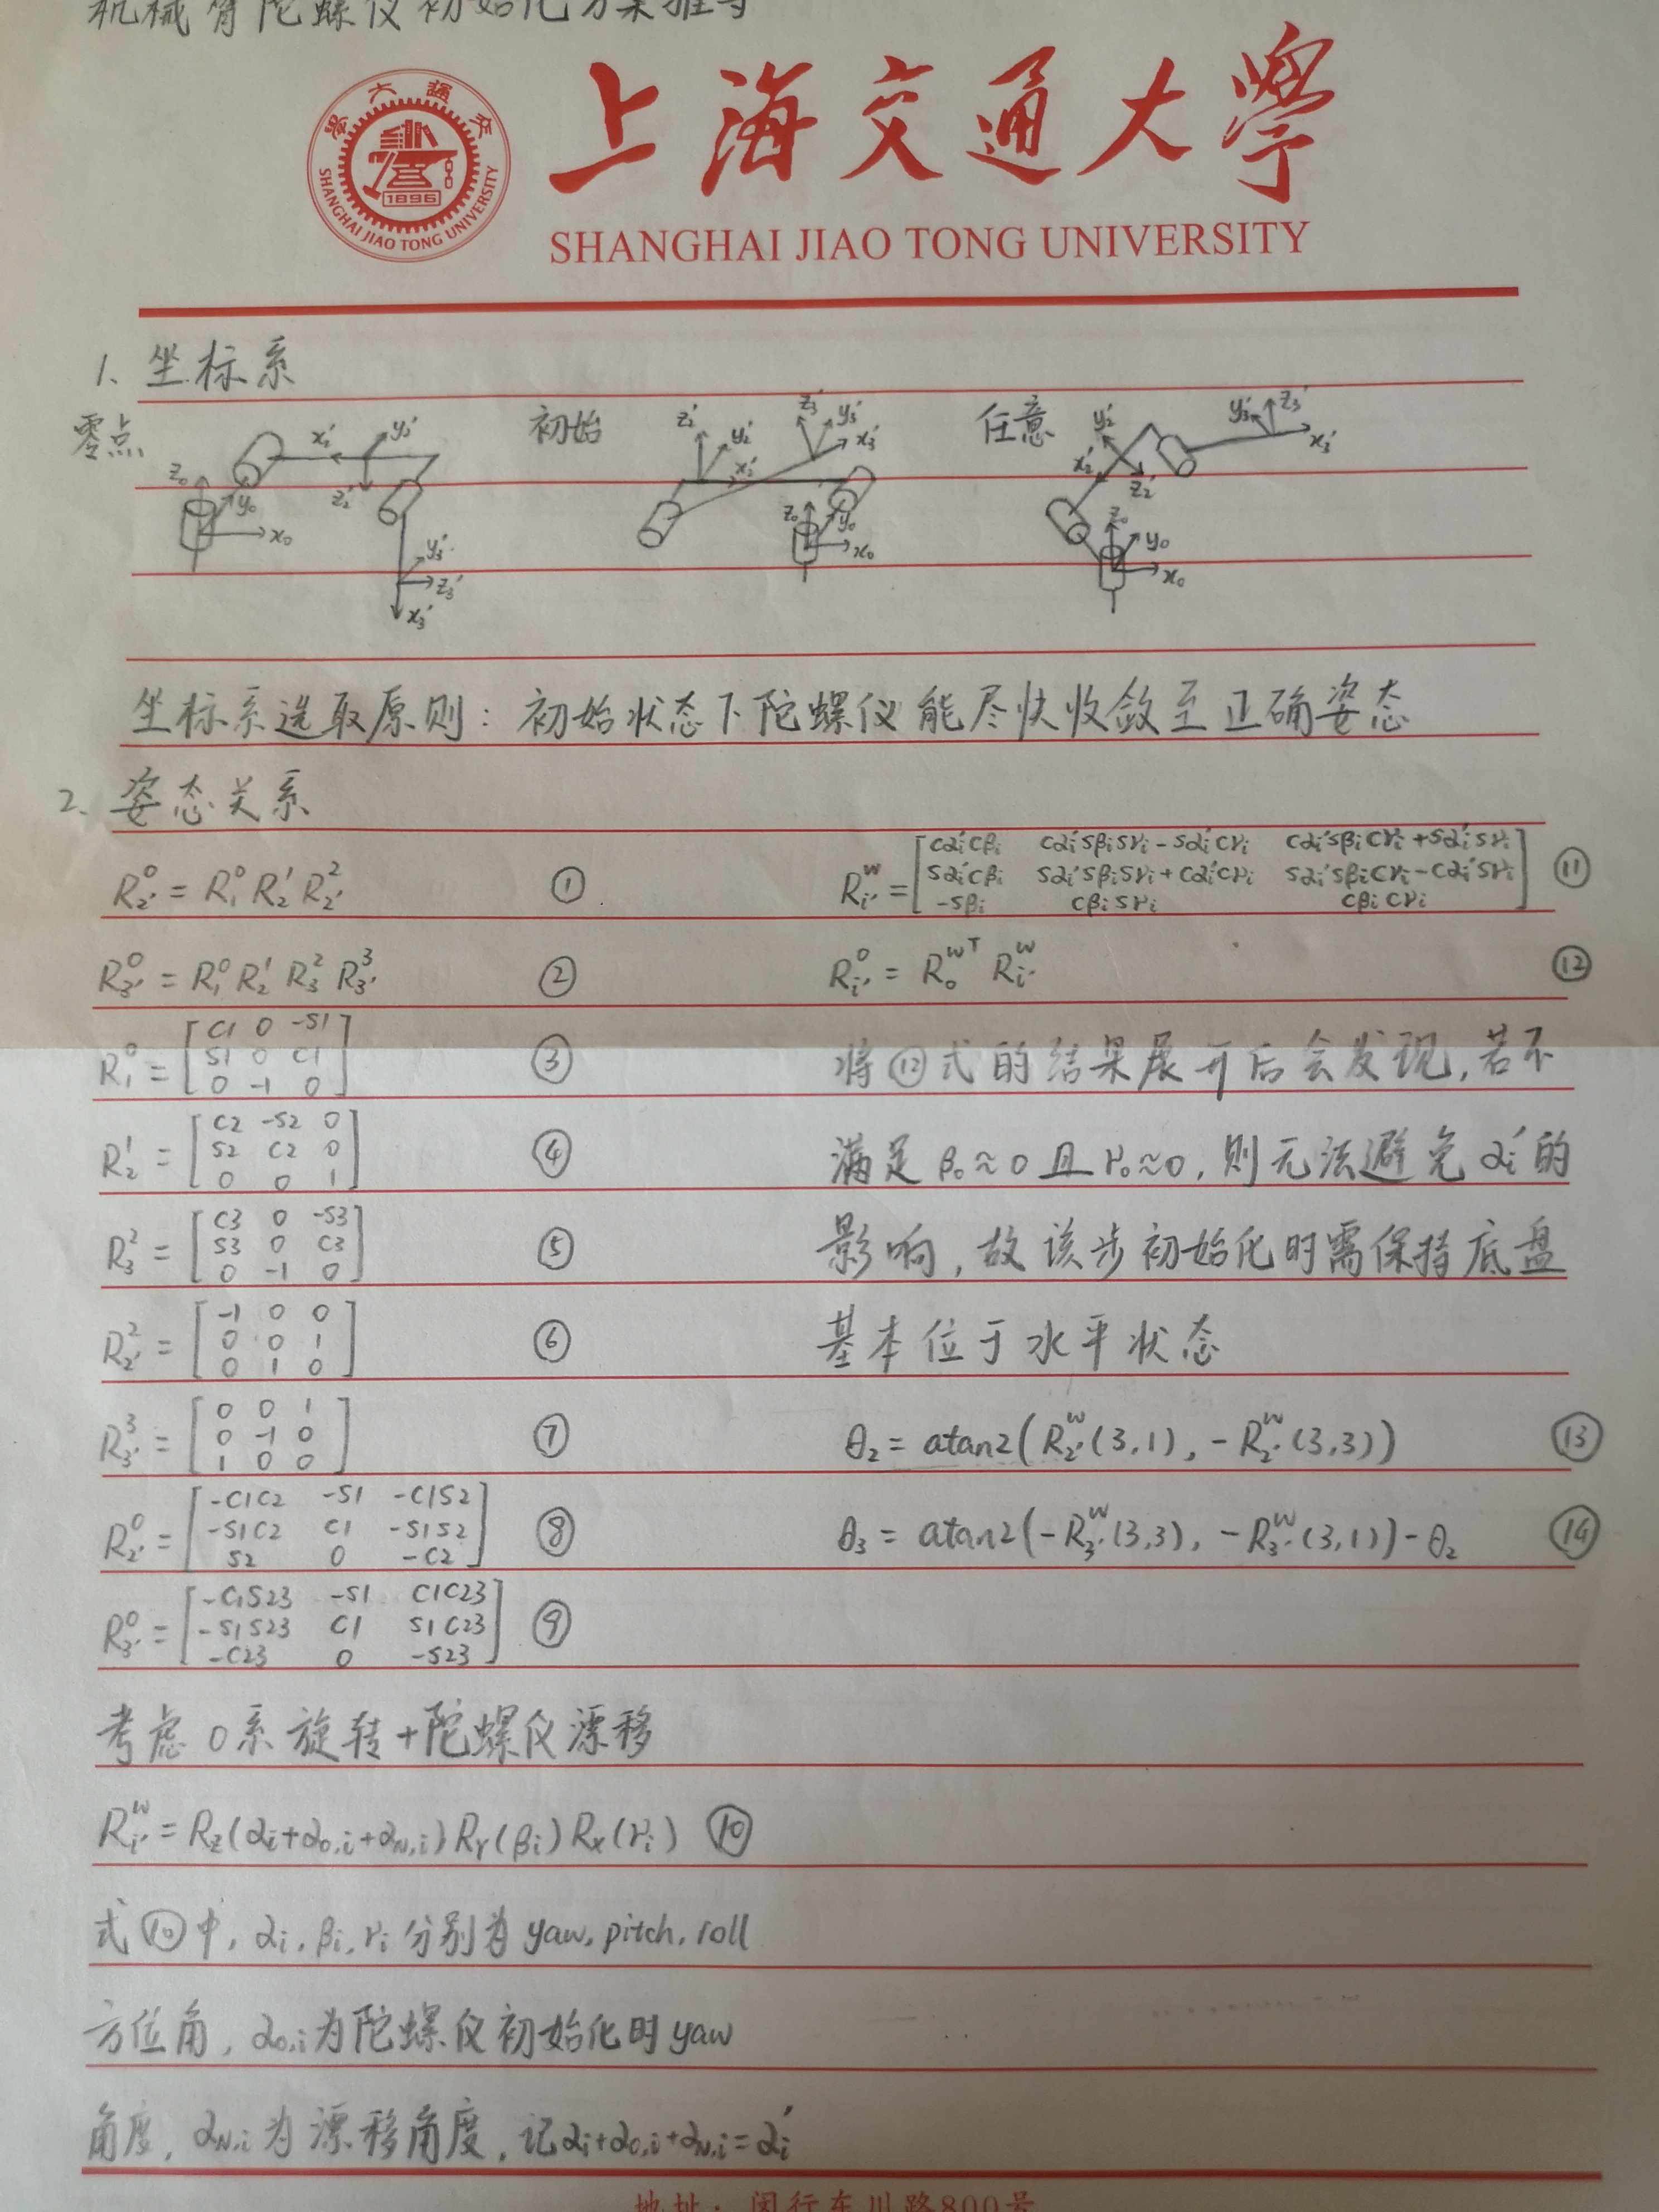 机械臂陀螺仪初始化方案推导
上海交通大學
SHANGHAI JIAO TONG UNIVERSITY
1896
SHANGHAI JIAO TONG UNIVERSITY
1、坐标系
零点
z₀ y₀ x₀ x₂′ y₂′ z₂′ y₃′ z₃′ x₃′
初始
z₂′ y₂′ x₂′ z₃′ y₃′ x₃′ z₀ y₀ x₀
任意
y₂′ x₂′ z₂′ y₃′ z₃′ x₃′ z₀ y₀ x₀
坐标系选取原则：初始状态下陀螺仪能尽快收敛至正确姿态
2、姿态关系
R⁰₂′ = R⁰₁ R¹₂ R²₂′ ①
R⁰₃′ = R⁰₁ R¹₂ R²₃ R³₃′ ②
R⁰₁ = [C1 0 -S1; S1 0 C1; 0 -1 0] ③
R¹₂ = [C2 -S2 0; S2 C2 0; 0 0 1] ④
R²₃ = [C3 0 -S3; S3 0 C3; 0 -1 0] ⑤
R²₂′ = [-1 0 0; 0 0 1; 0 1 0] ⑥
R³₃′ = [0 0 1; 0 -1 0; 1 0 0] ⑦
R⁰₂′ = [-C1C2 -S1 -C1S2; -S1C2 C1 -S1S2; S2 0 -C2] ⑧
R⁰₃′ = [-C1S23 -S1 C1C23; -S1S23 C1 S1C23; -C23 0 -S23] ⑨
考虑0系旋转+陀螺仪漂移
Rʷᵢ′ = R_Z(αᵢ+α₀,ᵢ+α_N,ᵢ) R_Y(βᵢ) R_X(γᵢ) ⑩
式⑩中, αᵢ, βᵢ, γᵢ 分别为 yaw, pitch, roll
方位角, α₀,ᵢ为陀螺仪初始化时yaw
角度, α_N,ᵢ为漂移角度, 记αᵢ+α₀,ᵢ+α_N,ᵢ=αᵢ′
Rʷᵢ′ = [Cαᵢ′Cβᵢ Cαᵢ′SβᵢSγᵢ-Sαᵢ′Cγᵢ Cαᵢ′SβᵢCγᵢ+Sαᵢ′Sγᵢ; Sαᵢ′Cβᵢ Sαᵢ′SβᵢSγᵢ+Cαᵢ′Cγᵢ Sαᵢ′SβᵢCγᵢ-Cαᵢ′Sγᵢ; -Sβᵢ CβᵢSγᵢ CβᵢCγᵢ] ⑪
R⁰ᵢ′ = R₀ʷᵀ Rʷᵢ′ ⑫
将⑫式的结果展开后会发现, 若不
满足β₀≈0且γ₀≈0, 则无法避免αᵢ′的
影响, 故该步初始化时需保持底盘
基本位于水平状态
θ₂ = atan2(Rʷ₂′(3,1), -Rʷ₂′(3,3)) ⑬
θ₃ = atan2(-Rʷ₃′(3,3), -Rʷ₃′(3,1)) - θ₂ ⑭
地址：闵行东川路800号